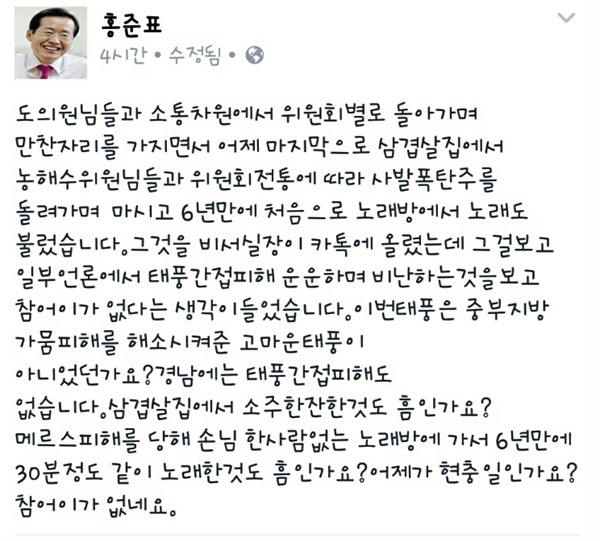 홍준표
4시간 • 수정됨 •
도의원님들과 소통차원에서 위원회별로 돌아가며
만찬자리를 가지면서 어제 마지막으로 삼겹살집에서
농해수위원님들과 위원회전통에 따라 사발폭탄주를
돌려가며 마시고 6년만에 처음으로 노래방에서 노래도
불렀습니다.그것을 비서실장이 카톡에 올렸는데 그걸보고
일부언론에서 태풍간접피해 운운하며 비난하는것을보고
참어이가 없다는 생각이들었습니다.이번태풍은 중부지방
가뭄피해를 해소시켜준 고마운태풍이
아니었던가요?경남에는 태풍간접피해도
없습니다.삼겹살집에서 소주한잔한것도 흠인가요?
메르스피해를 당해 손님 한사람없는 노래방에 가서 6년만에
30분정도 같이 노래한것도 흠인가요?어제가 현충일인가요?
참어이가 없네요.